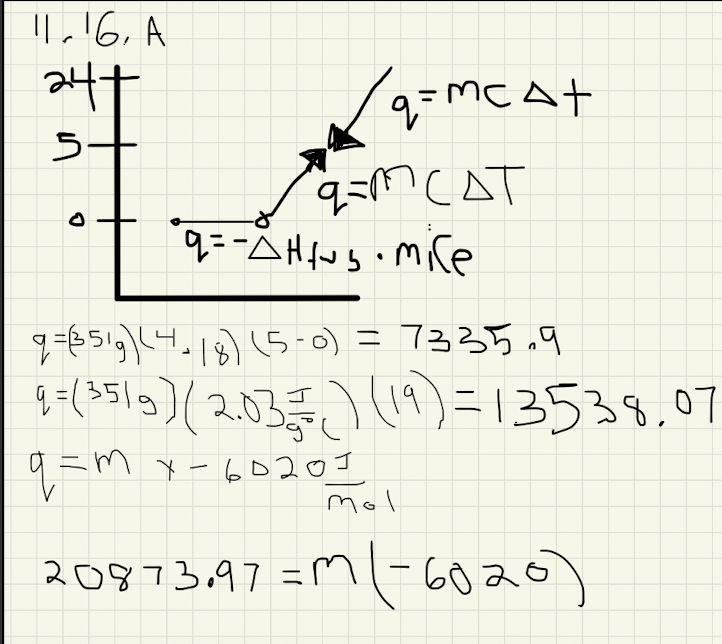 11.16.A
24
q=mcΔt
5
q=mCΔT
0
q=-ΔHfus·mice
q=(351g)(4.18)(5-0) = 7335.9
q=(351g)(2.03 J/g°C)(19)=13538.07
q=m x -6020 J/mol
20873.97=m(-6020)